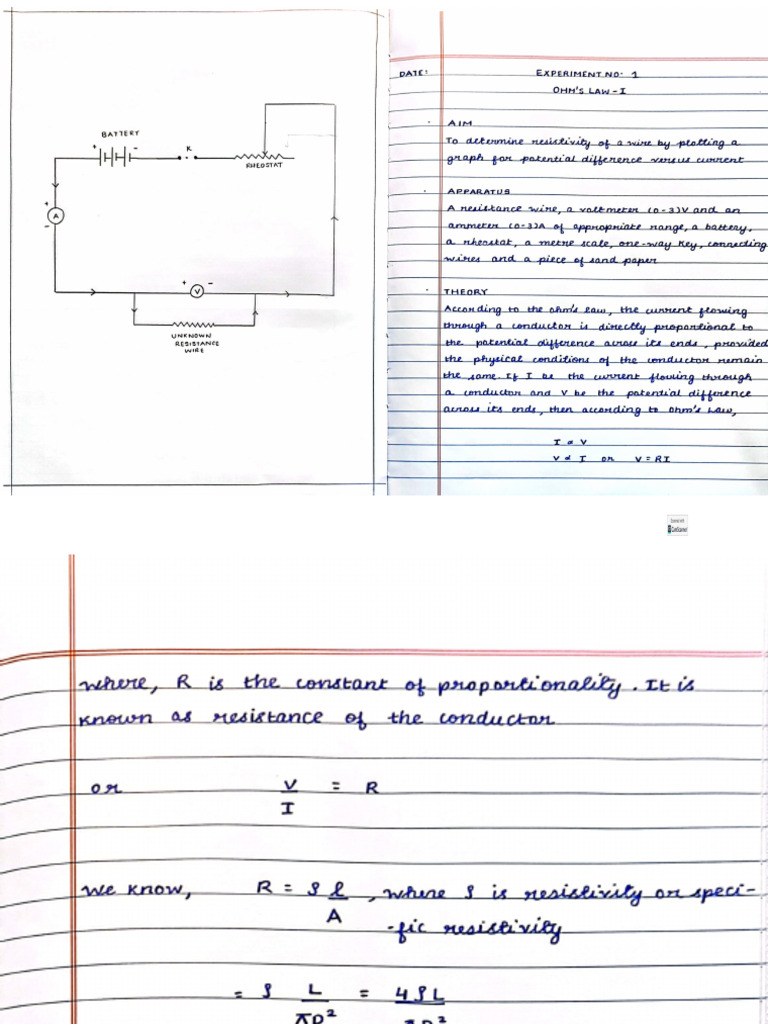 BATTERY
+ -
K
RHEOSTAT
+
A
-
+ V -
UNKNOWN
RESISTANCE
WIRE
DATE:
EXPERIMENT NO- 1
OHM'S LAW - I
. AIM
To determine resistivity of a wire by plotting a
graph for potential difference versus current
. APPARATUS
A resistance wire, a voltmeter (0-3)V and an
ammeter (0-3)A of appropriate range, a battery,
a rheostat, a metre scale, one-way key, connecting
wires and a piece of sand paper
. THEORY
According to the ohm's law, the current flowing
through a conductor is directly proportional to
the potential difference across its ends, provided
the physical conditions of the conductor remain
the same. If I be the current flowing through
a conductor and V be the potential difference
across its ends, then according to Ohm's Law,
I α V
V α I or V = RI
Scanned with
CamScanner
where, R is the constant of proportionality. It is
known as resistance of the conductor
or V/I = R
We know, R = ρ l/A, where ρ is resistivity or speci-
-fic resistivity
= ρ L/πD² = 4ρL/πD²